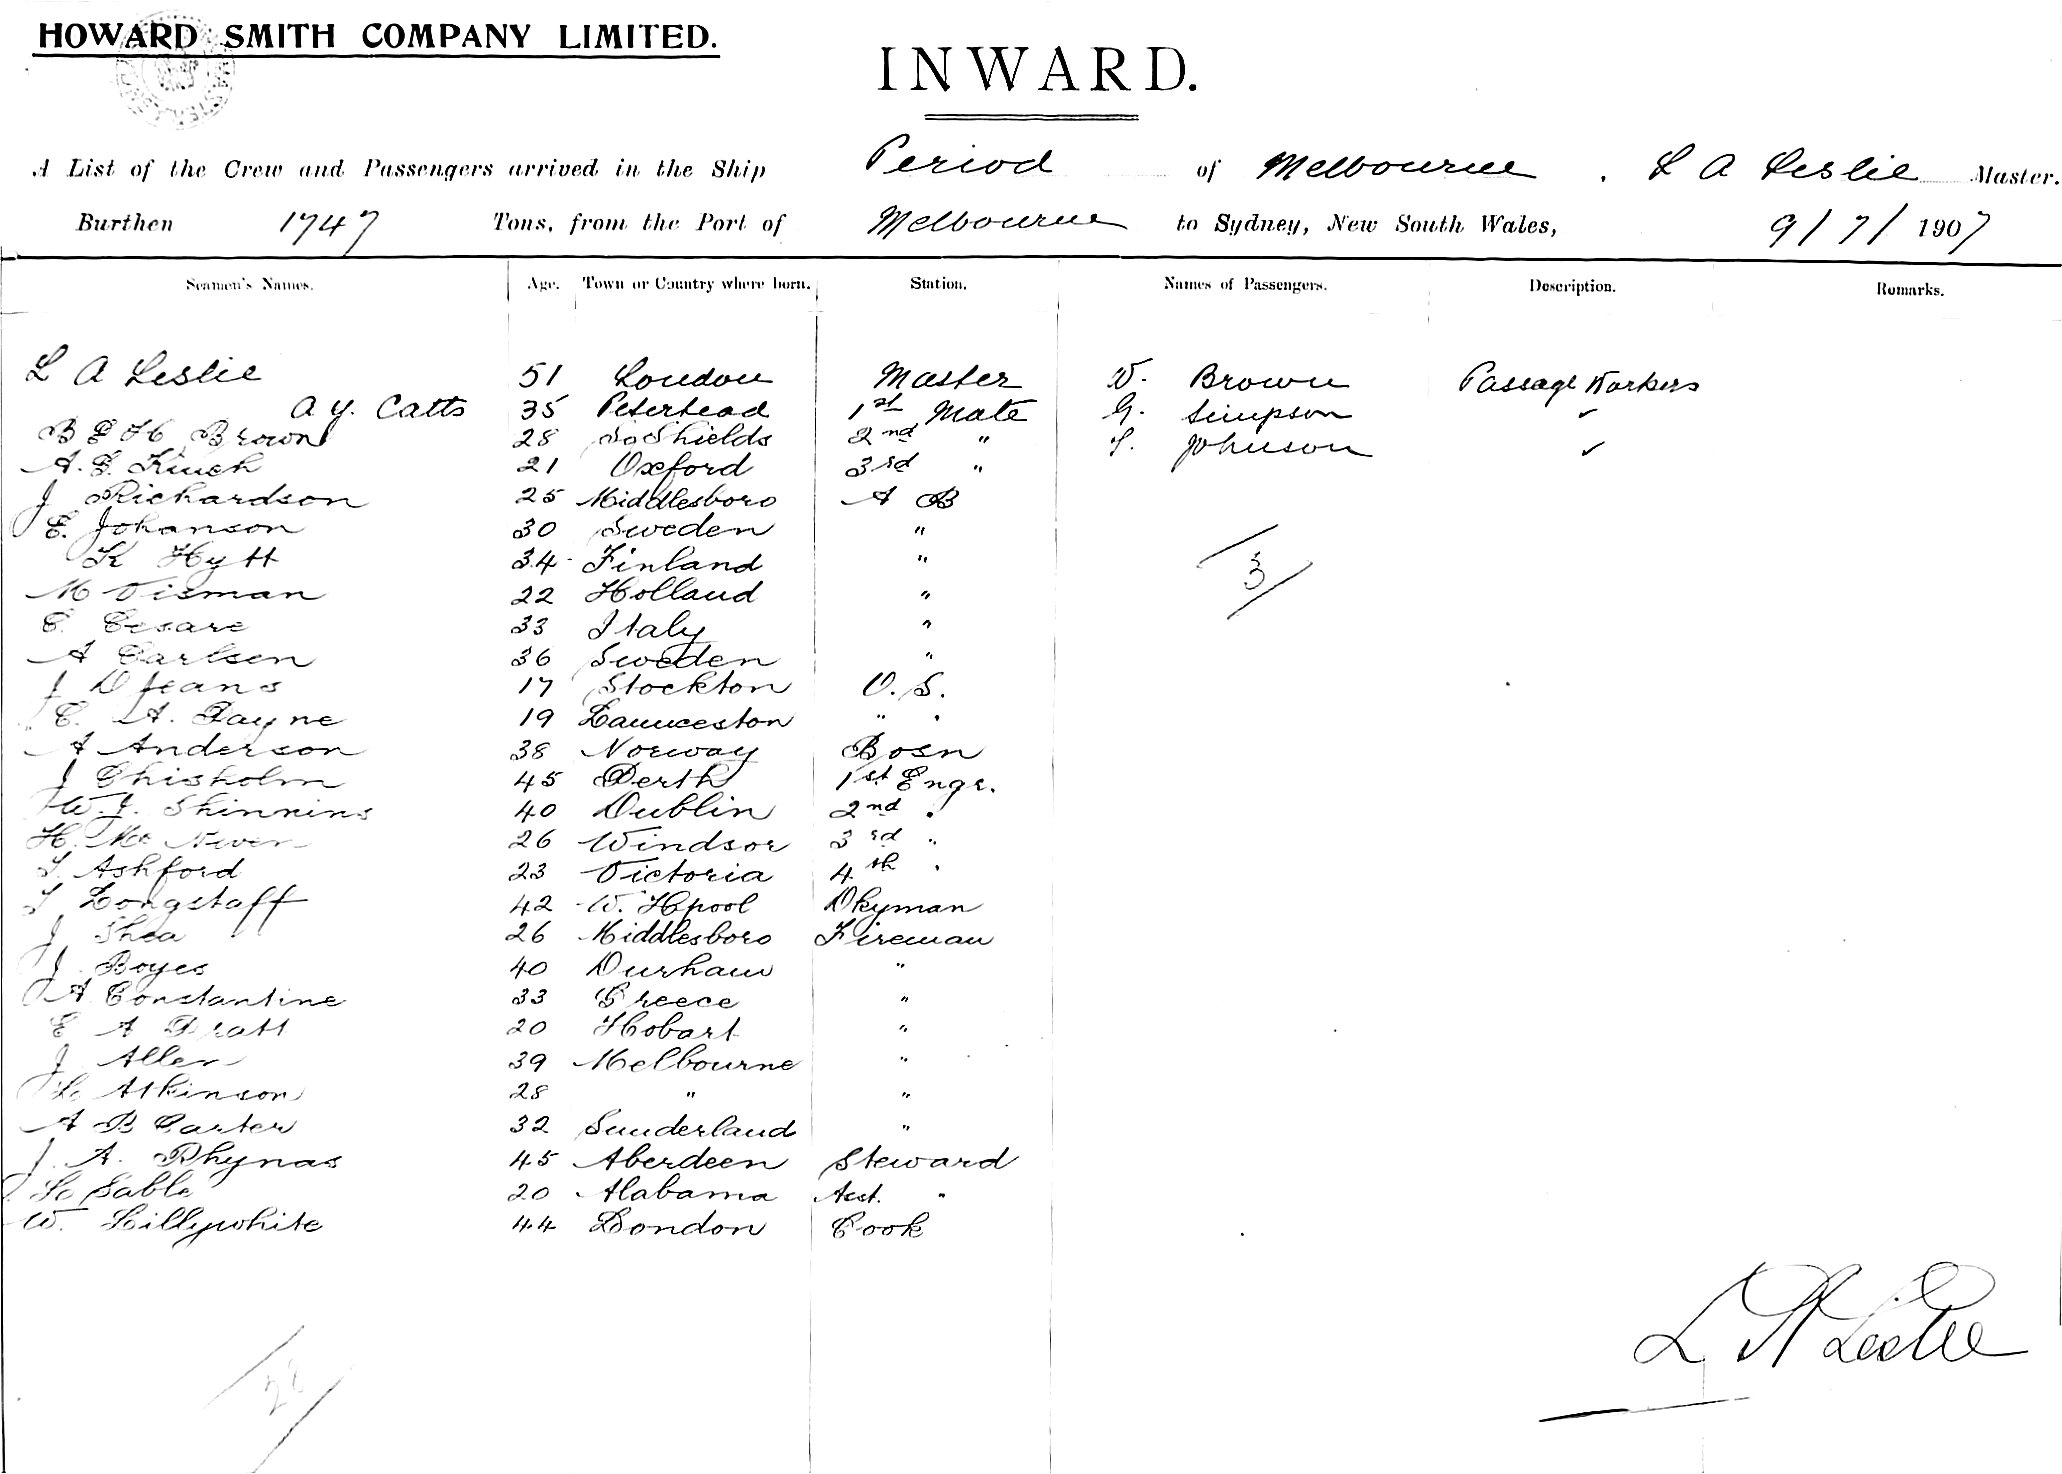 HOWARD SMITH COMPANY LIMITED.
INWARD.
A List of the Crew and Passengers arrived in the Ship Period of Melbourne . L A Leslie Master.
Burthen 1747 Tons, from the Port of Melbourne to Sydney, New South Wales, 9/7/1907
Seamen's Names. Age. Town or Country where born. Station. Names of Passengers. Description. Remarks.
L A Leslie 51 London Master W. Brown Passage Workers
A y. Catts 35 Peterhead 1st Mate G. Simpson "
B E H Brown 28 So Shields 2nd " Johnson "
A. E. Kinch 21 Oxford 3rd "
J Richardson 25 Middlesboro A B
E. Johanson 30 Sweden "
K Hytt 34 Finland "
3
M Visman 22 Holland "
C. Cesare 33 Italy "
A Carlsen 36 Sweden "
J D Jeans 17 Stockton O. S.
C. A. Payne 19 Launceston " "
A Anderson 38 Norway Bosn
J Chisholm 45 Perth 1st Engr.
W. J. Skinnins 40 Dublin 2nd "
H. Mc Niven 26 Windsor 3rd "
T. Ashford 23 Victoria 4th "
T Longstaff 42 W. Hpool Dkyman
J Shea 26 Middlesboro Fireman
J. Boyes 40 Durham "
A Constantine 33 Greece "
E A Pratt 20 Hobart "
J Allen 39 Melbourne "
Atkinson 28 " "
A B Carter 32 Sunderland "
J. A. Rhynas 45 Aberdeen Steward
Sable 20 Alabama Asst. "
W. Lillywhite 44 London Cook
L A Leslie
28